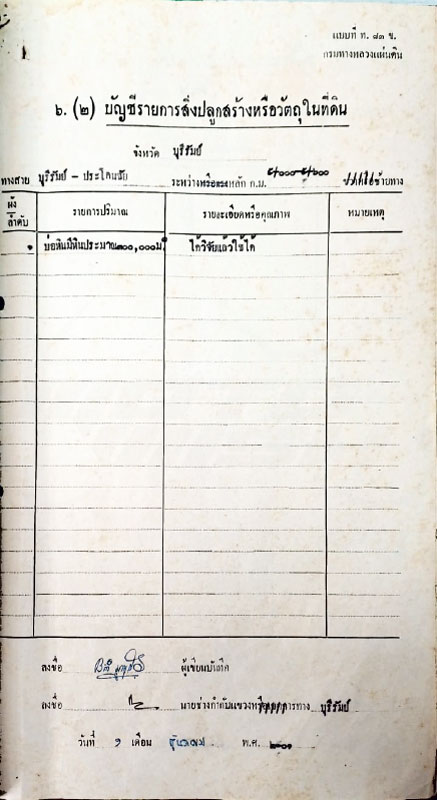 แบบที่ ท. ๘๓ ข.
กรมทางหลวงแผ่นดิน
๖. (๒) บัญชีรายการสิ่งปลูกสร้างหรือวัตถุในที่ดิน
จังหวัด บุรีรัมย์
ทางสาย บุรีรัมย์ - ประโคนชัย ระหว่างหรือตรงหลัก ก.ม. ซ้ายทาง
ผัง ลำดับ รายการปริมาณ รายละเอียดหรือคุณภาพ หมายเหตุ
๑ บ่อหินมีหินประมาณ๓๐๐,๐๐๐ม.๓ ได้วิจัยแล้วใช้ได้
ลงชื่อ ผู้เขียนบันทึก
ลงชื่อ นายช่างกำกับแขวงหรือเขตการทาง บุรีรัมย์
วันที่ ๑ เดือน พ.ศ. ๒๕๐๑